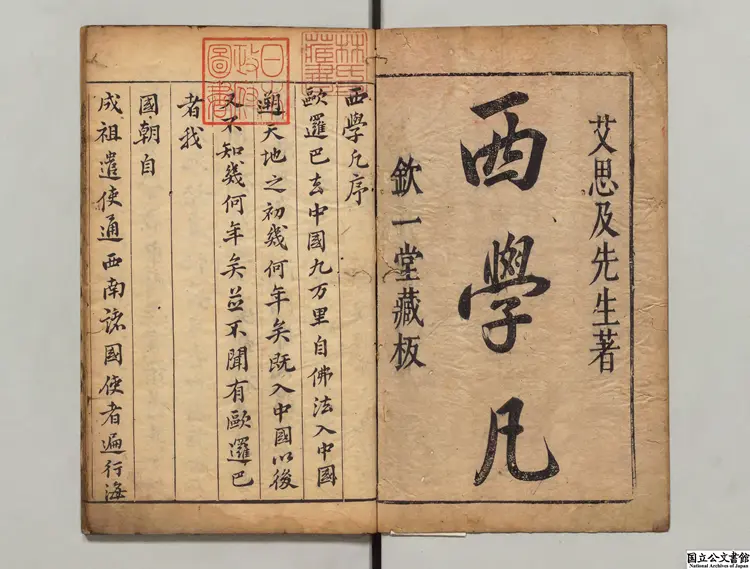 艾思及先生著
西學凡
欽一堂藏板
西學凡序
歐邏巴去中國九万里自佛法入中國
遡天地之初幾何年矣既入中國以後
又不知幾何年矣並不聞有歐邏巴
者我
國朝自
成祖遣使通西南諸國使者遍行海
林氏
藏書
日本
政府
圖書
国立公文書館
National Archives of Japan